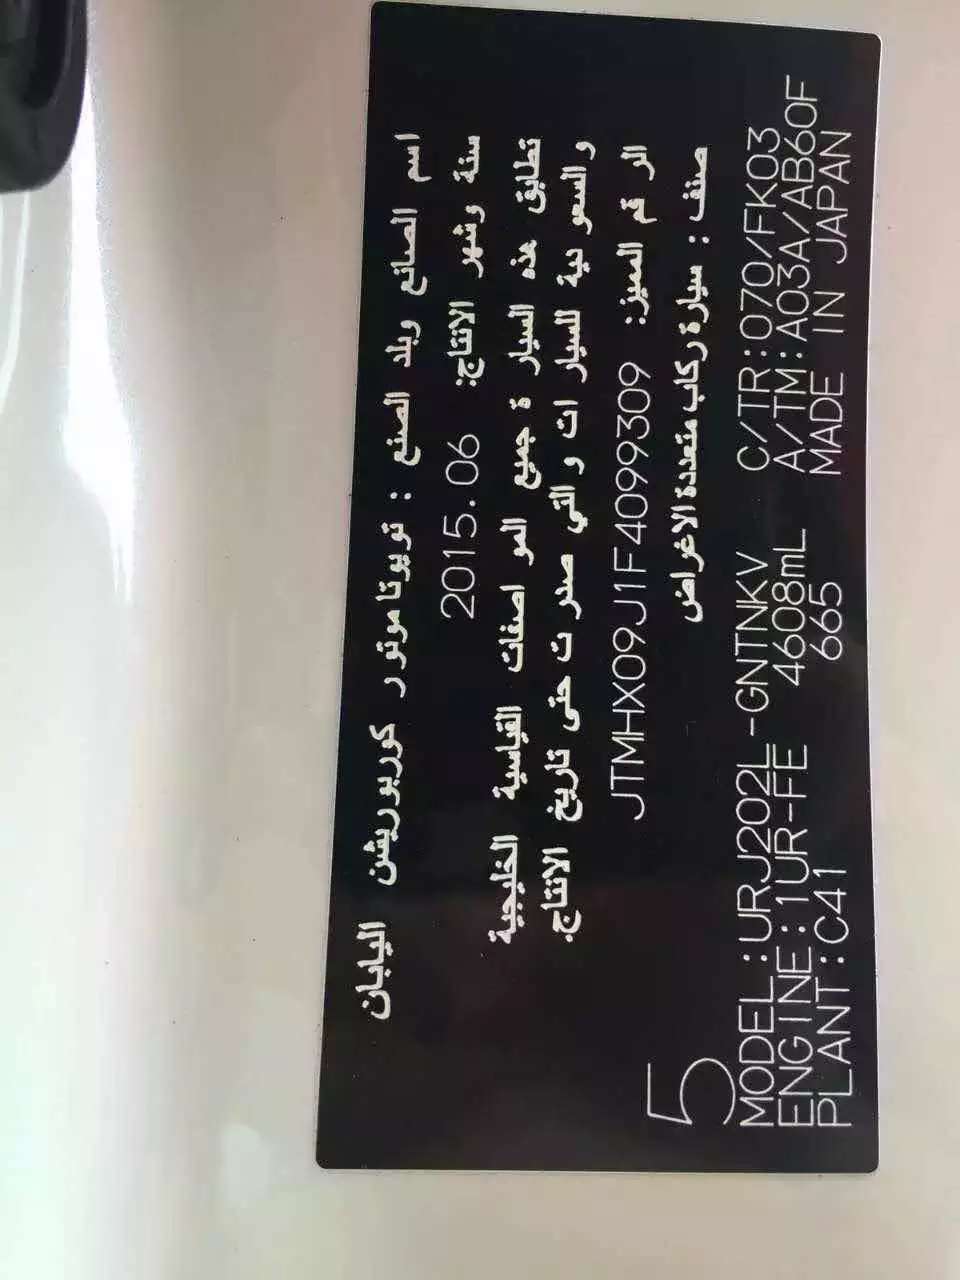 اسم الصانع وبلد الصنع : تويوتا موتور كوربوريشن اليابان
سنة وشهر الانتاج: 2015.06
تطابق هذه السيارة جميع المواصفات القياسية الخليجية
والسعودية للسيارات والتي صدرت حتى تاريخ الانتاج.
الرقم المميز: JTMHX09J1F4099309
صنف : سيارة ركاب متعددة الاغراض
5
MODEL:URJ202L-GNTNKV C/TR:070/FK03
ENGINE:1UR-FE 4608mL A/TM:A03A/AB60F
PLANT:C41 665 MADE IN JAPAN